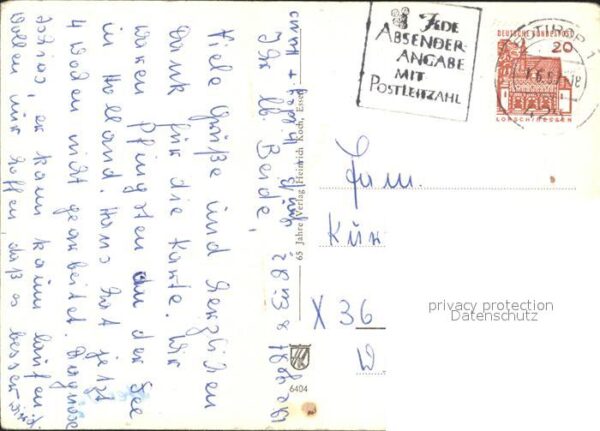 JEDE
ABSENDER-
ANGABE
MIT
POSTLEITZAHL
DEUTSCHE BUNDESPOST
20
LORSCH/HESSEN
65 Jahre Verlag Heinrich Koch, Essen
6404
Fam.
Kün
X 36
W
privacy protection
Datenschutz
Ihr lb Beide,
Viele Grüße und herzlichen
Dank für die Karte. Wir
waren Pfingsten an der See
in Holland. Hans hat jetzt
4 Wochen nicht gearbeitet. Diagnose
Ischias, er kann kaum laufen
wollen wir hoffen daß es besser wird